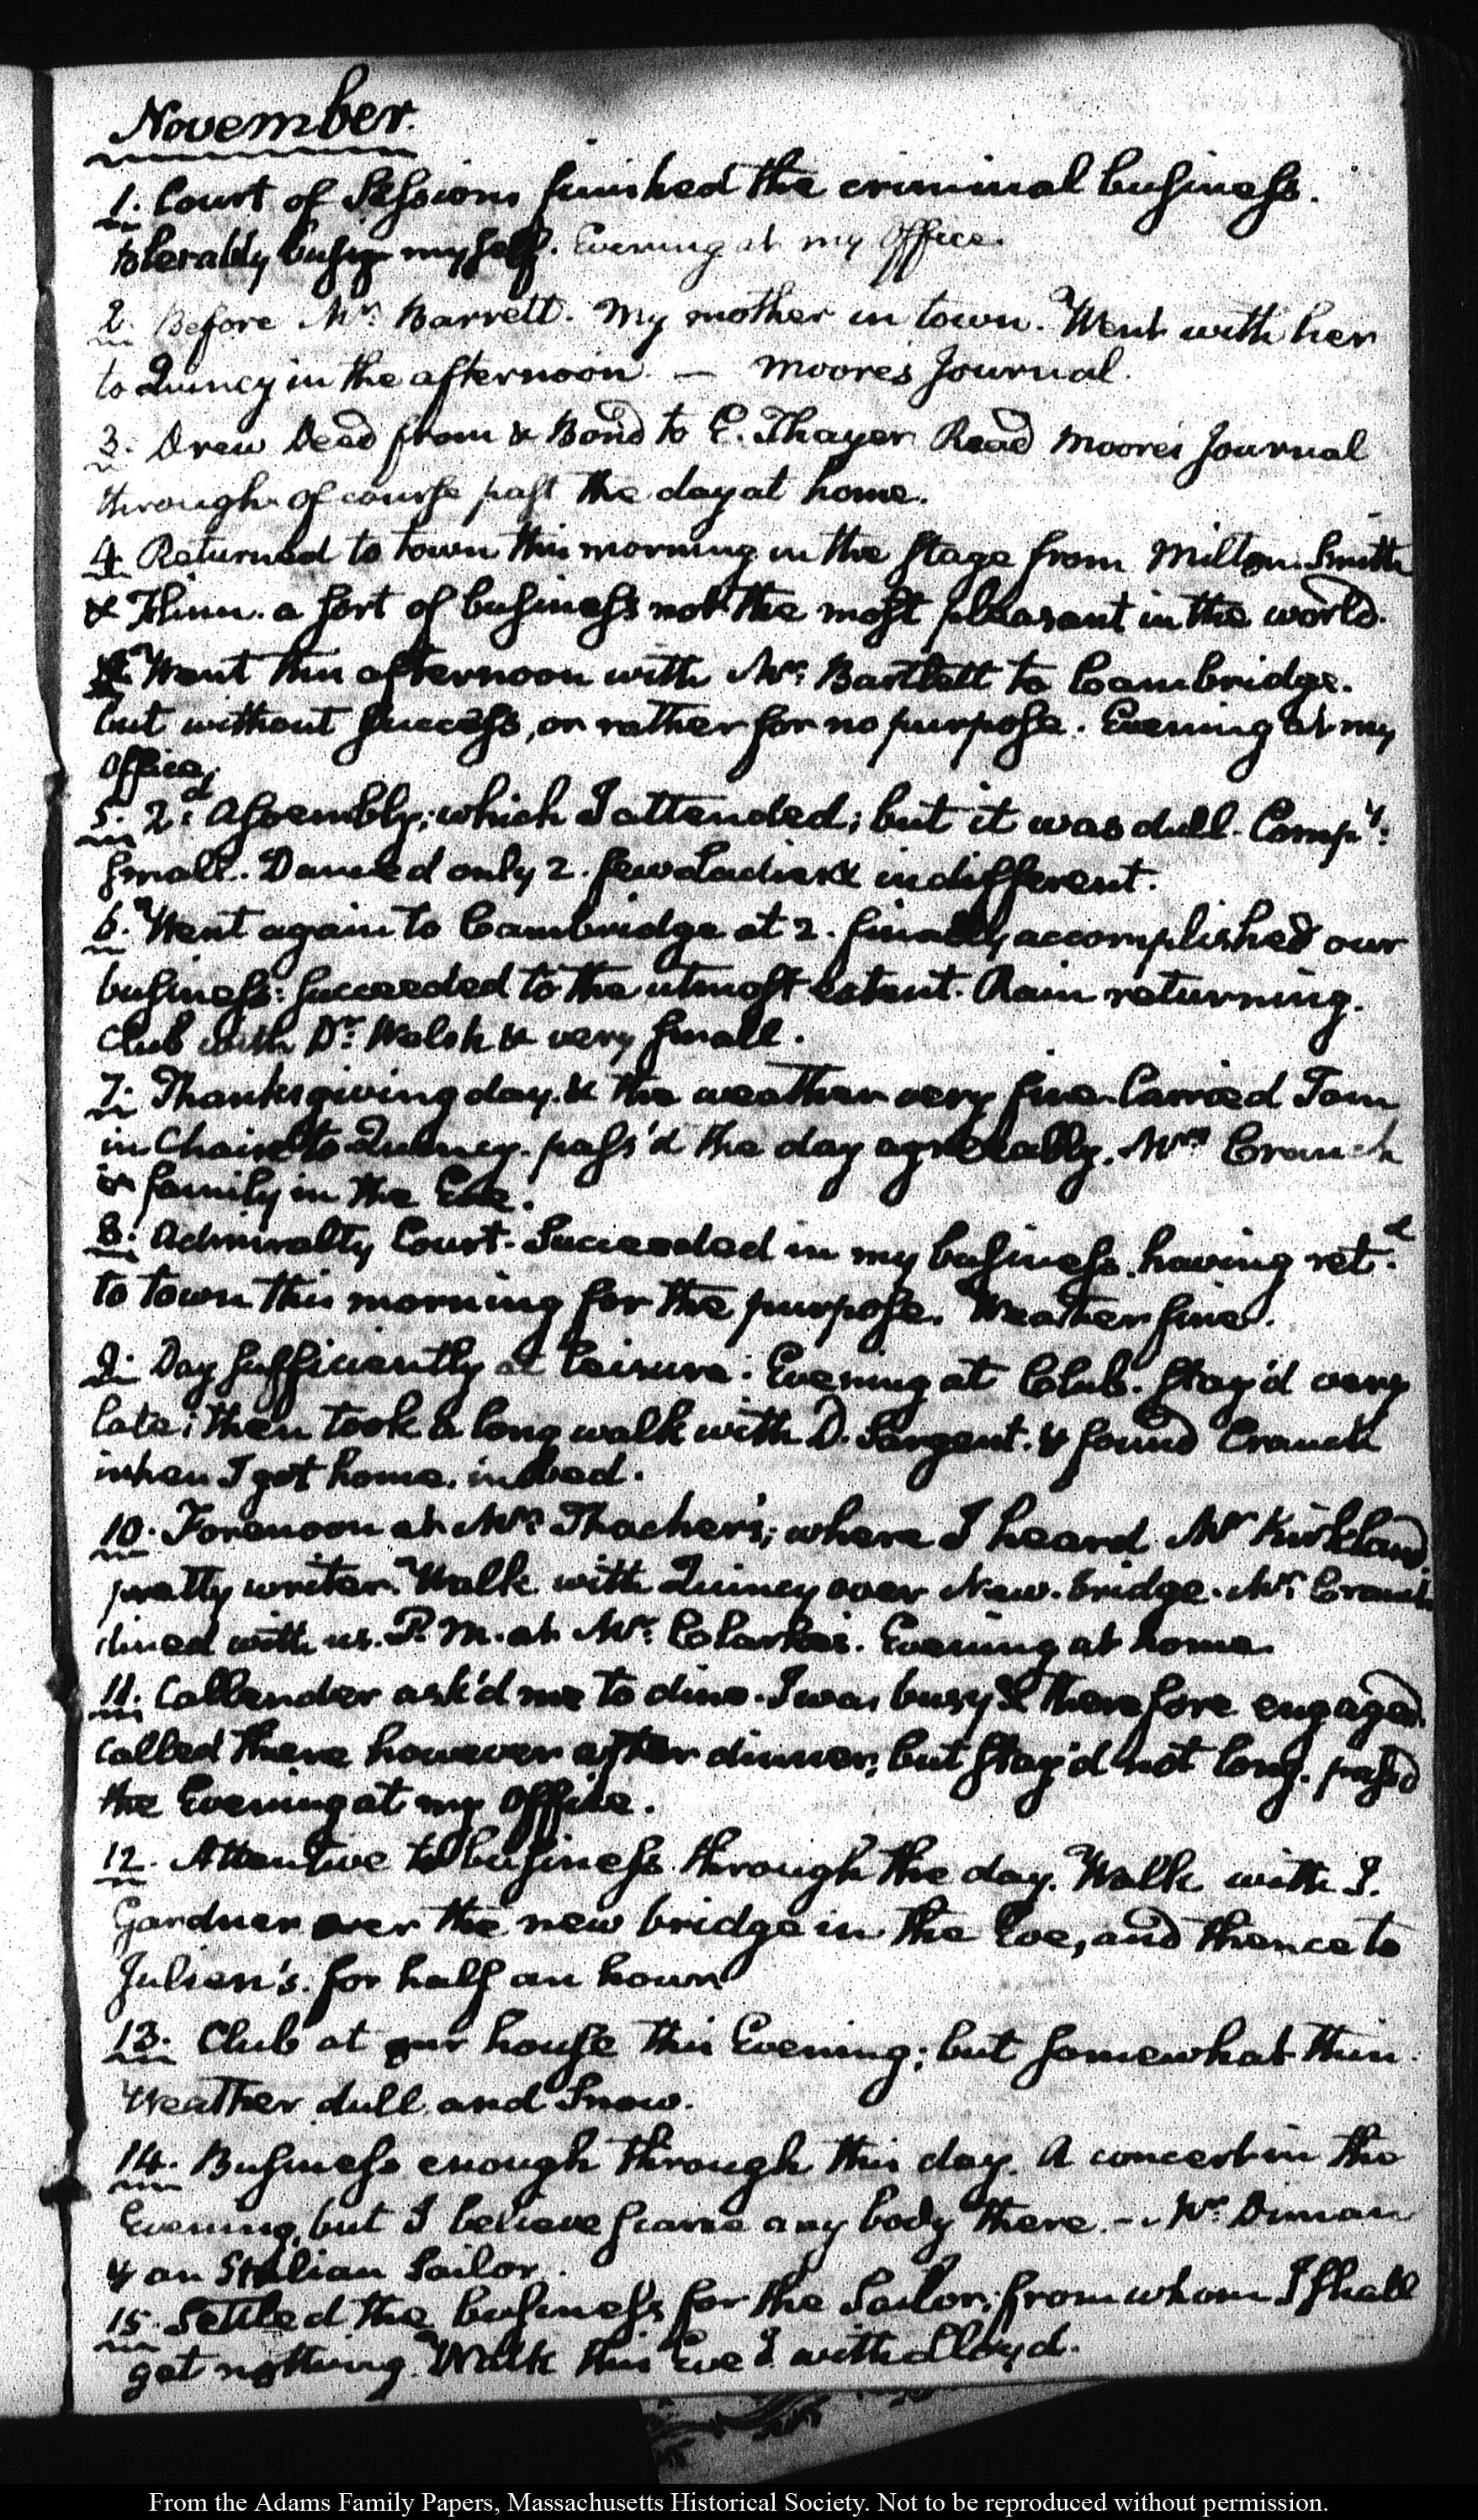 November.
1. Court of Sessions finished the criminal business.
tolerably busy myself. Evening at my Office.
2. Before Mr. Barrett. My mother in town. Went with her
to Quincy in the afternoon. — Moore's Journal.
3. Drew Deed from & Bond to E. Thayer Read Moore's Journal
through. of course past the day at home.
4. Returned to town this morning in the stage from Milton. Smith
& a sort of business not the most pleasant in the world.
Went this afternoon with Mr. Bartlett to Cambridge.
but without success, or rather for no purpose. Evening at my
Office.
5. 2d. Assembly; which I attended; but it was dull. Compy.
small. Danced only 2. few Ladies & indifferent.
6. Went again to Cambridge at 2. finally accomplished our
business: succeeded to the utmost extent. Rain returning.
Club with Dr. Welsh & very small.
7. Thanksgiving day. & the weather very fine. Carried Tom
in Chaise to Quincy. pass'd the day agreeably. Mrs. Cranch
& family in the Eve.
8. Admiralty Court. Succeeded in my business. having retd.
to town this morning for the purpose. Weather fine.
9. Day sufficiently at leisure. Evening at Club. Stay'd very
late; then took a long walk with D. Sargent. & found Cranch
when I got home. in bed.
10. Forenoon at Mr. Thacher's; where I heard Mr Kirkland.
pretty writer. Walk with Quincy over New-bridge. Mr. Cranch
dined with us. P.M. at Mr. Clarke's. Evening at home.
11. Callender ask'd me to dine. I was busy & therefore engaged.
called there however after dinner; but stay'd not long. pass'd
the Evening at my Office.
12. Attentive to business through the day. Walk with J.
Gardner over the new bridge in the Eve, and thence to
Julien's. for half an hour.
13. Club at our house this Evening; but somewhat thin.
Weather dull and Snow.
14. Business enough through this day. A concert in the
Evening, but I believe scarce any body there. — Mr. Diman
& an Italian Sailor.
15. Settled the business for the Sailor; from whom I shall
get nothing. Walk this Eve with Lloyd.
From the Adams Family Papers, Massachusetts Historical Society. Not to be reproduced without permission.